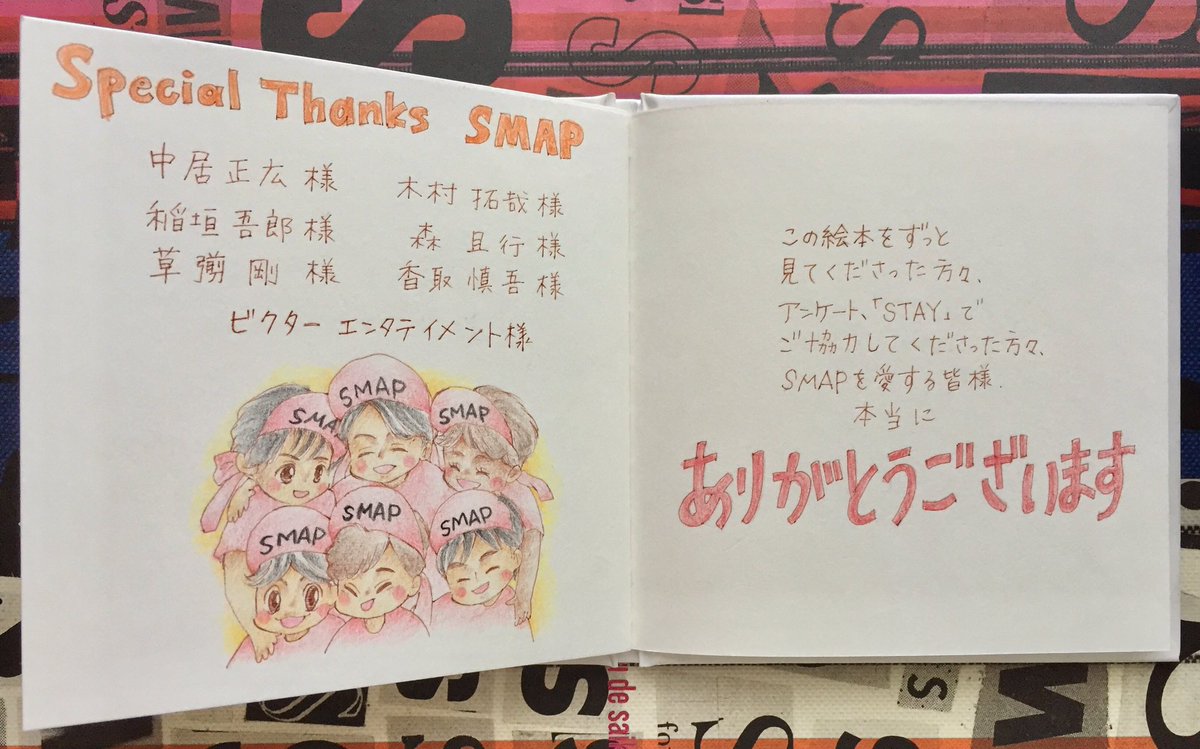 Special Thanks SMAP
中居正広様 木村拓哉様
稲垣吾郎様 森且行様
草彅剛様 香取慎吾様
ビクターエンタテイメント様
SMAP
SMAP
SMAP
SMAP
SMAP
SMAP
この絵本をずっと
見てくださった方々、
アンケート、「STAY」で
ご協力してくださった方々、
SMAPを愛する皆様.
本当に
ありがとうございます
de sail